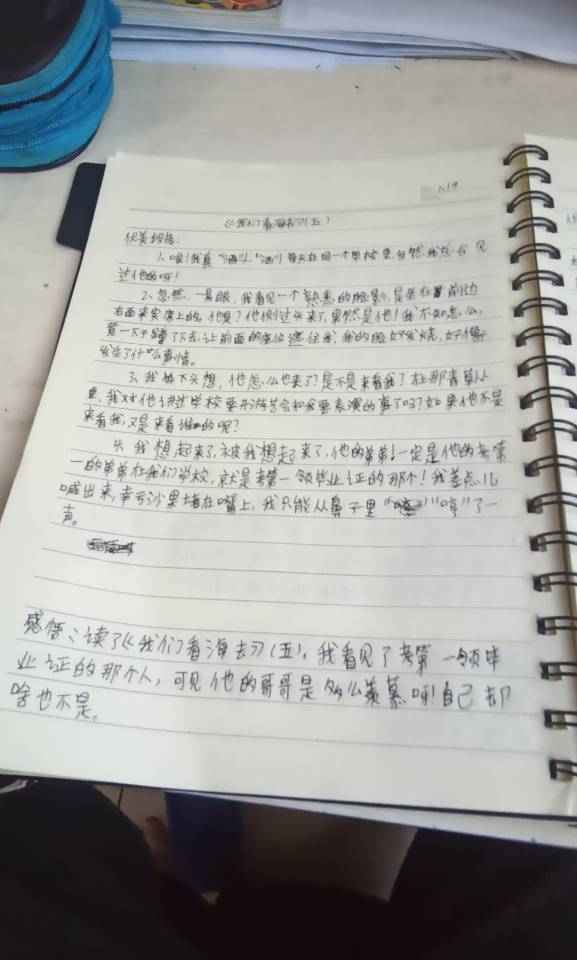 1.19
《我们看海去》(五)
优美段落:
1、唉!我真"洒""洒"每天在同一个学校里,当然我总会见
过他的呀!
2、忽然,一晃眼,我看见一个熟悉的脸影,是坐在前边
右面来宾席上的。他是?他侧过头来了,果然是他!我不知怎么,
一下子蹲了下去,让前面的座位遮住我,我的脸好发烧,好像
发生了什么事情。
3、我低下头想,他怎么也来了?是不是来看我?在那青草丛
里,我对他讲过学校要开游艺会和我要表演的事了吗?如果他不是
来看我,又是来看谁的呢?
4、我想起来了,被我想起来了,他的弟弟!一定是他的考第
一的弟弟在我们学校,就是考第一领毕业证的那个!我差点儿
喊出来,幸亏沙果堵在嘴上,我只能从鼻子里"哼"了一
声。
感悟:读了《我们看海去》(五),我看见了考第一领毕
业证的那个人,可见他的哥哥是多么羡慕呀!自己却
啥也不是。